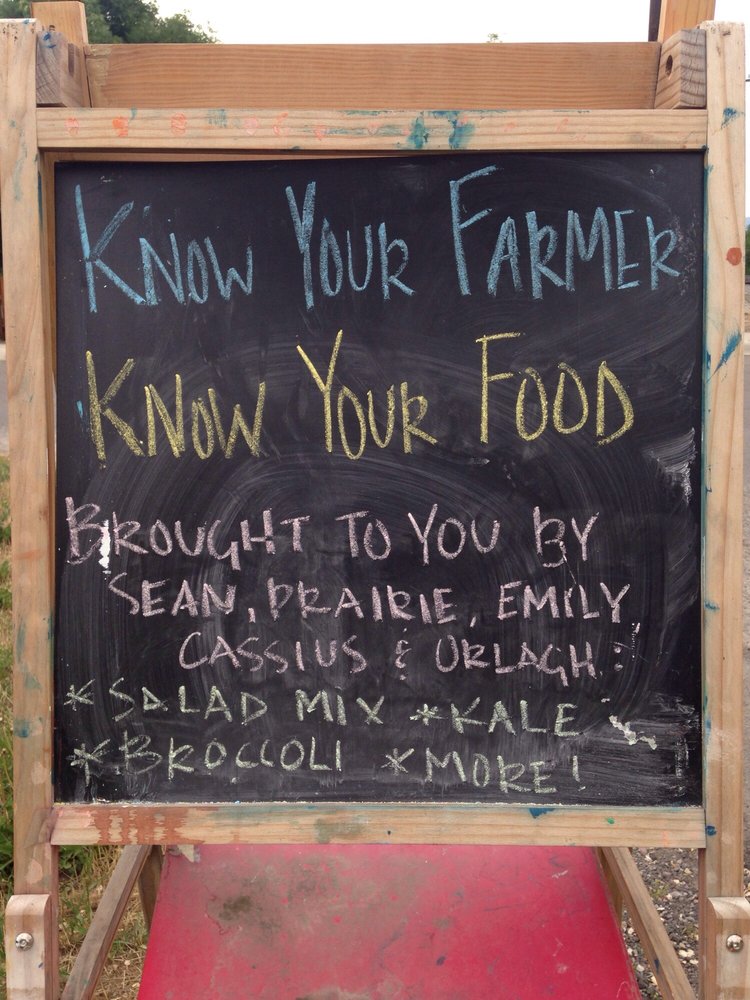 KNOW YOUR FARMER
KNOW YOUR FOOD
BROUGHT TO YOU BY
SEAN, PRAIRIE, EMILY,
CASSIUS & URLAGH:
*SALAD MIX *KALE
*BROCCOLI *MORE!